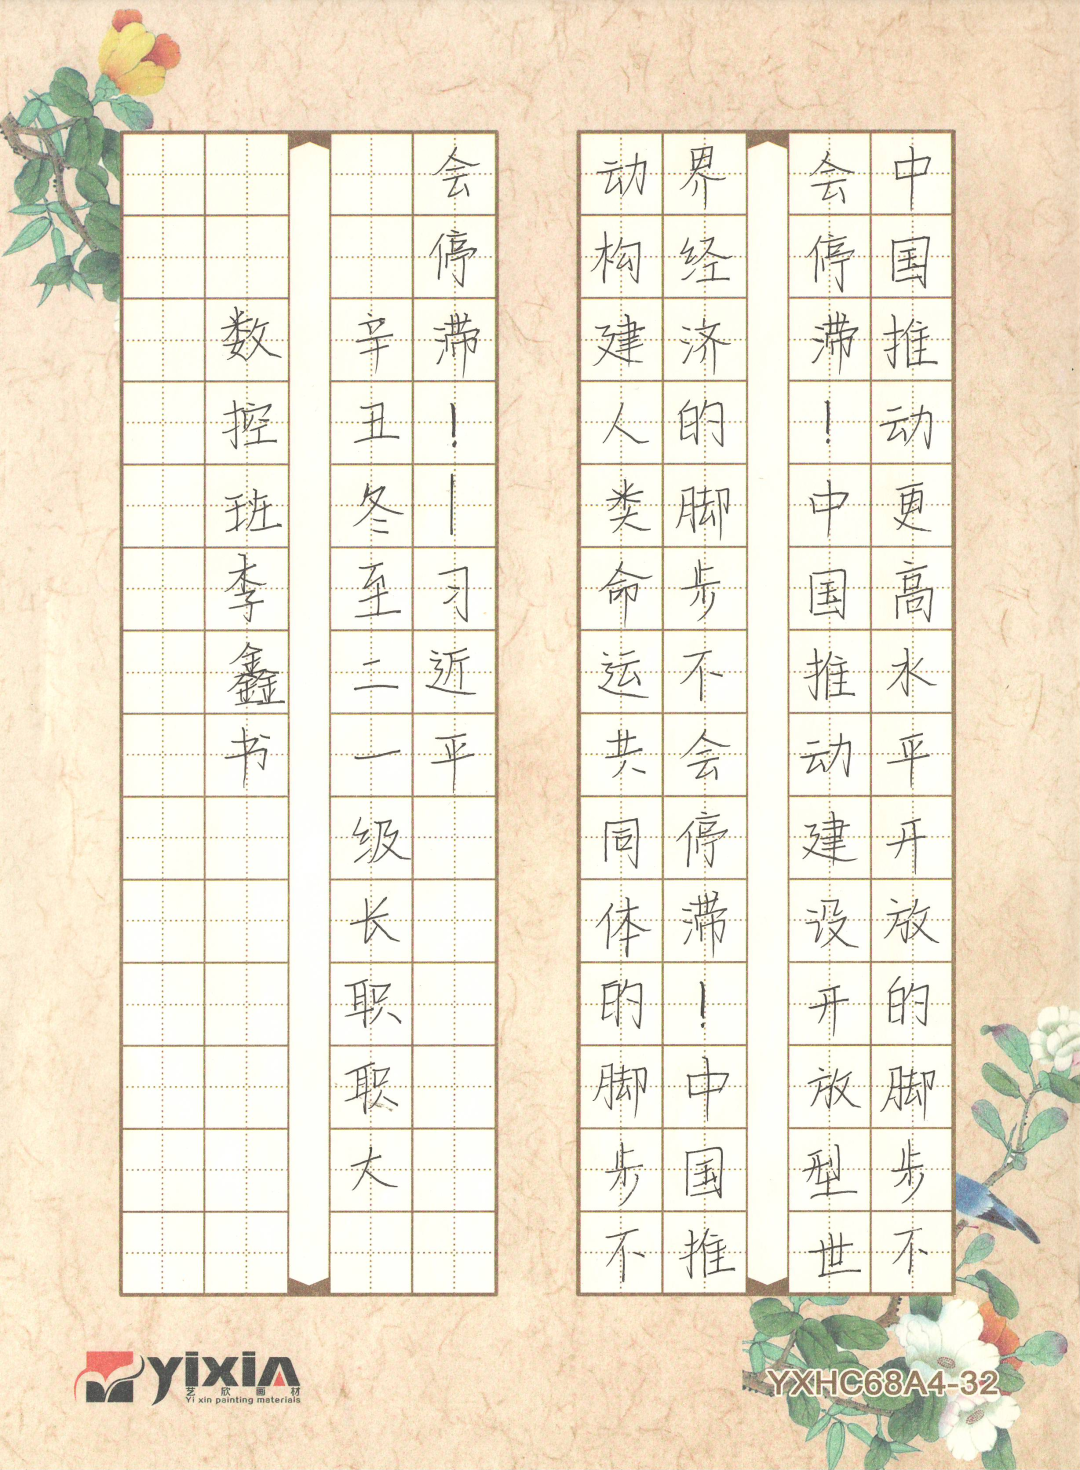 中国推动更高水平开放的脚步不
会停滞！中国推动建设开放型世
界经济的脚步不会停滞！中国推
动构建人类命运共同体的脚步不
会停滞！—习近平
辛丑冬至二一级长职职大
数控班李鑫书
yixin
艺欣画材
Yi xin painting materials
YXHC68A4-32